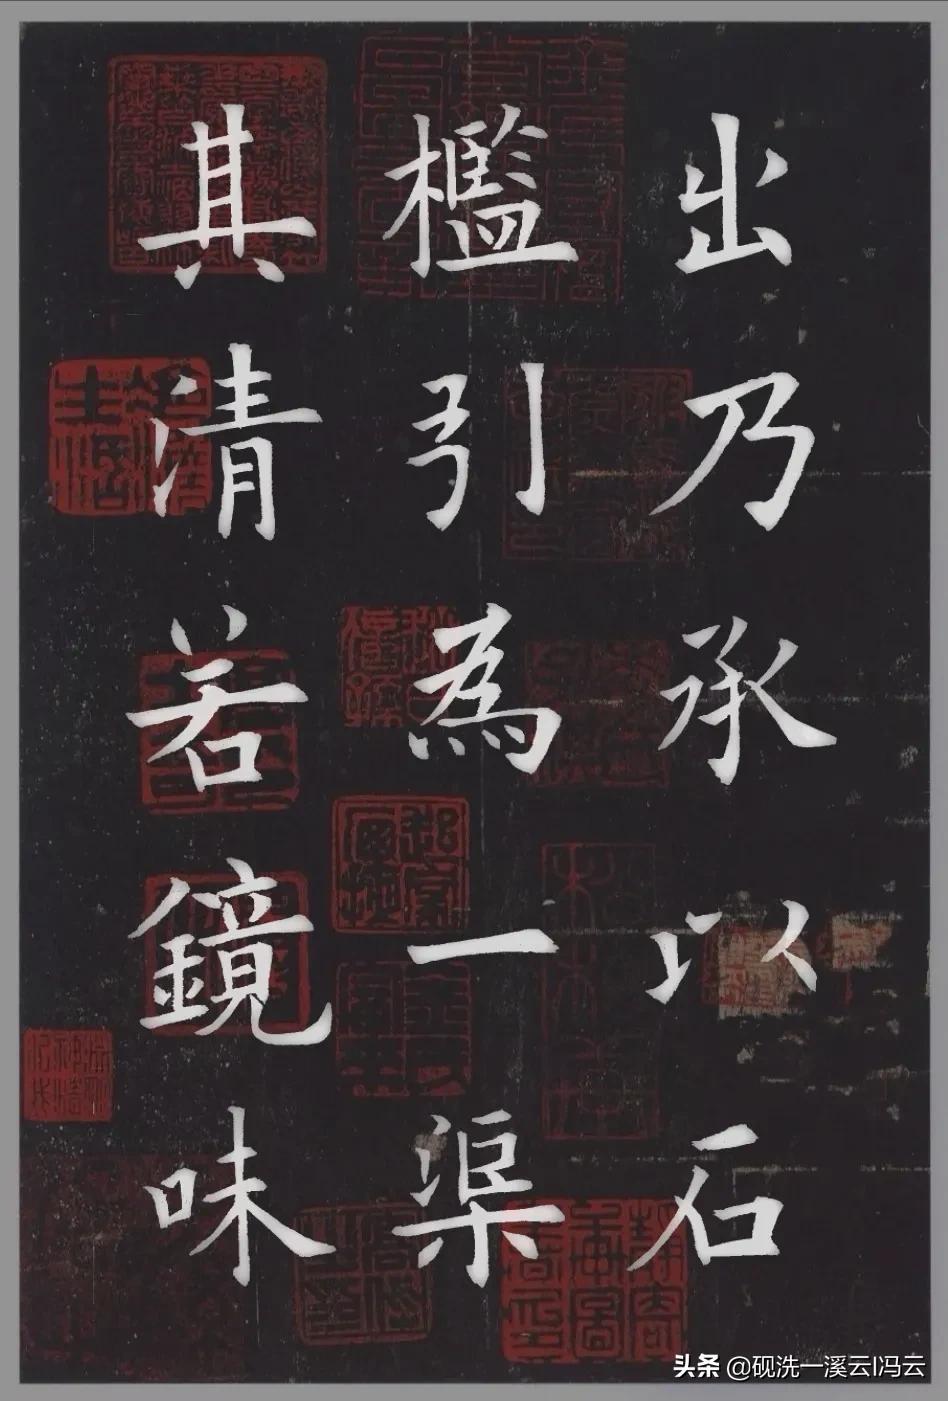 出乃承以石
檻引為一渠
其清若鏡味
头条 @砚洗一溪云I冯云